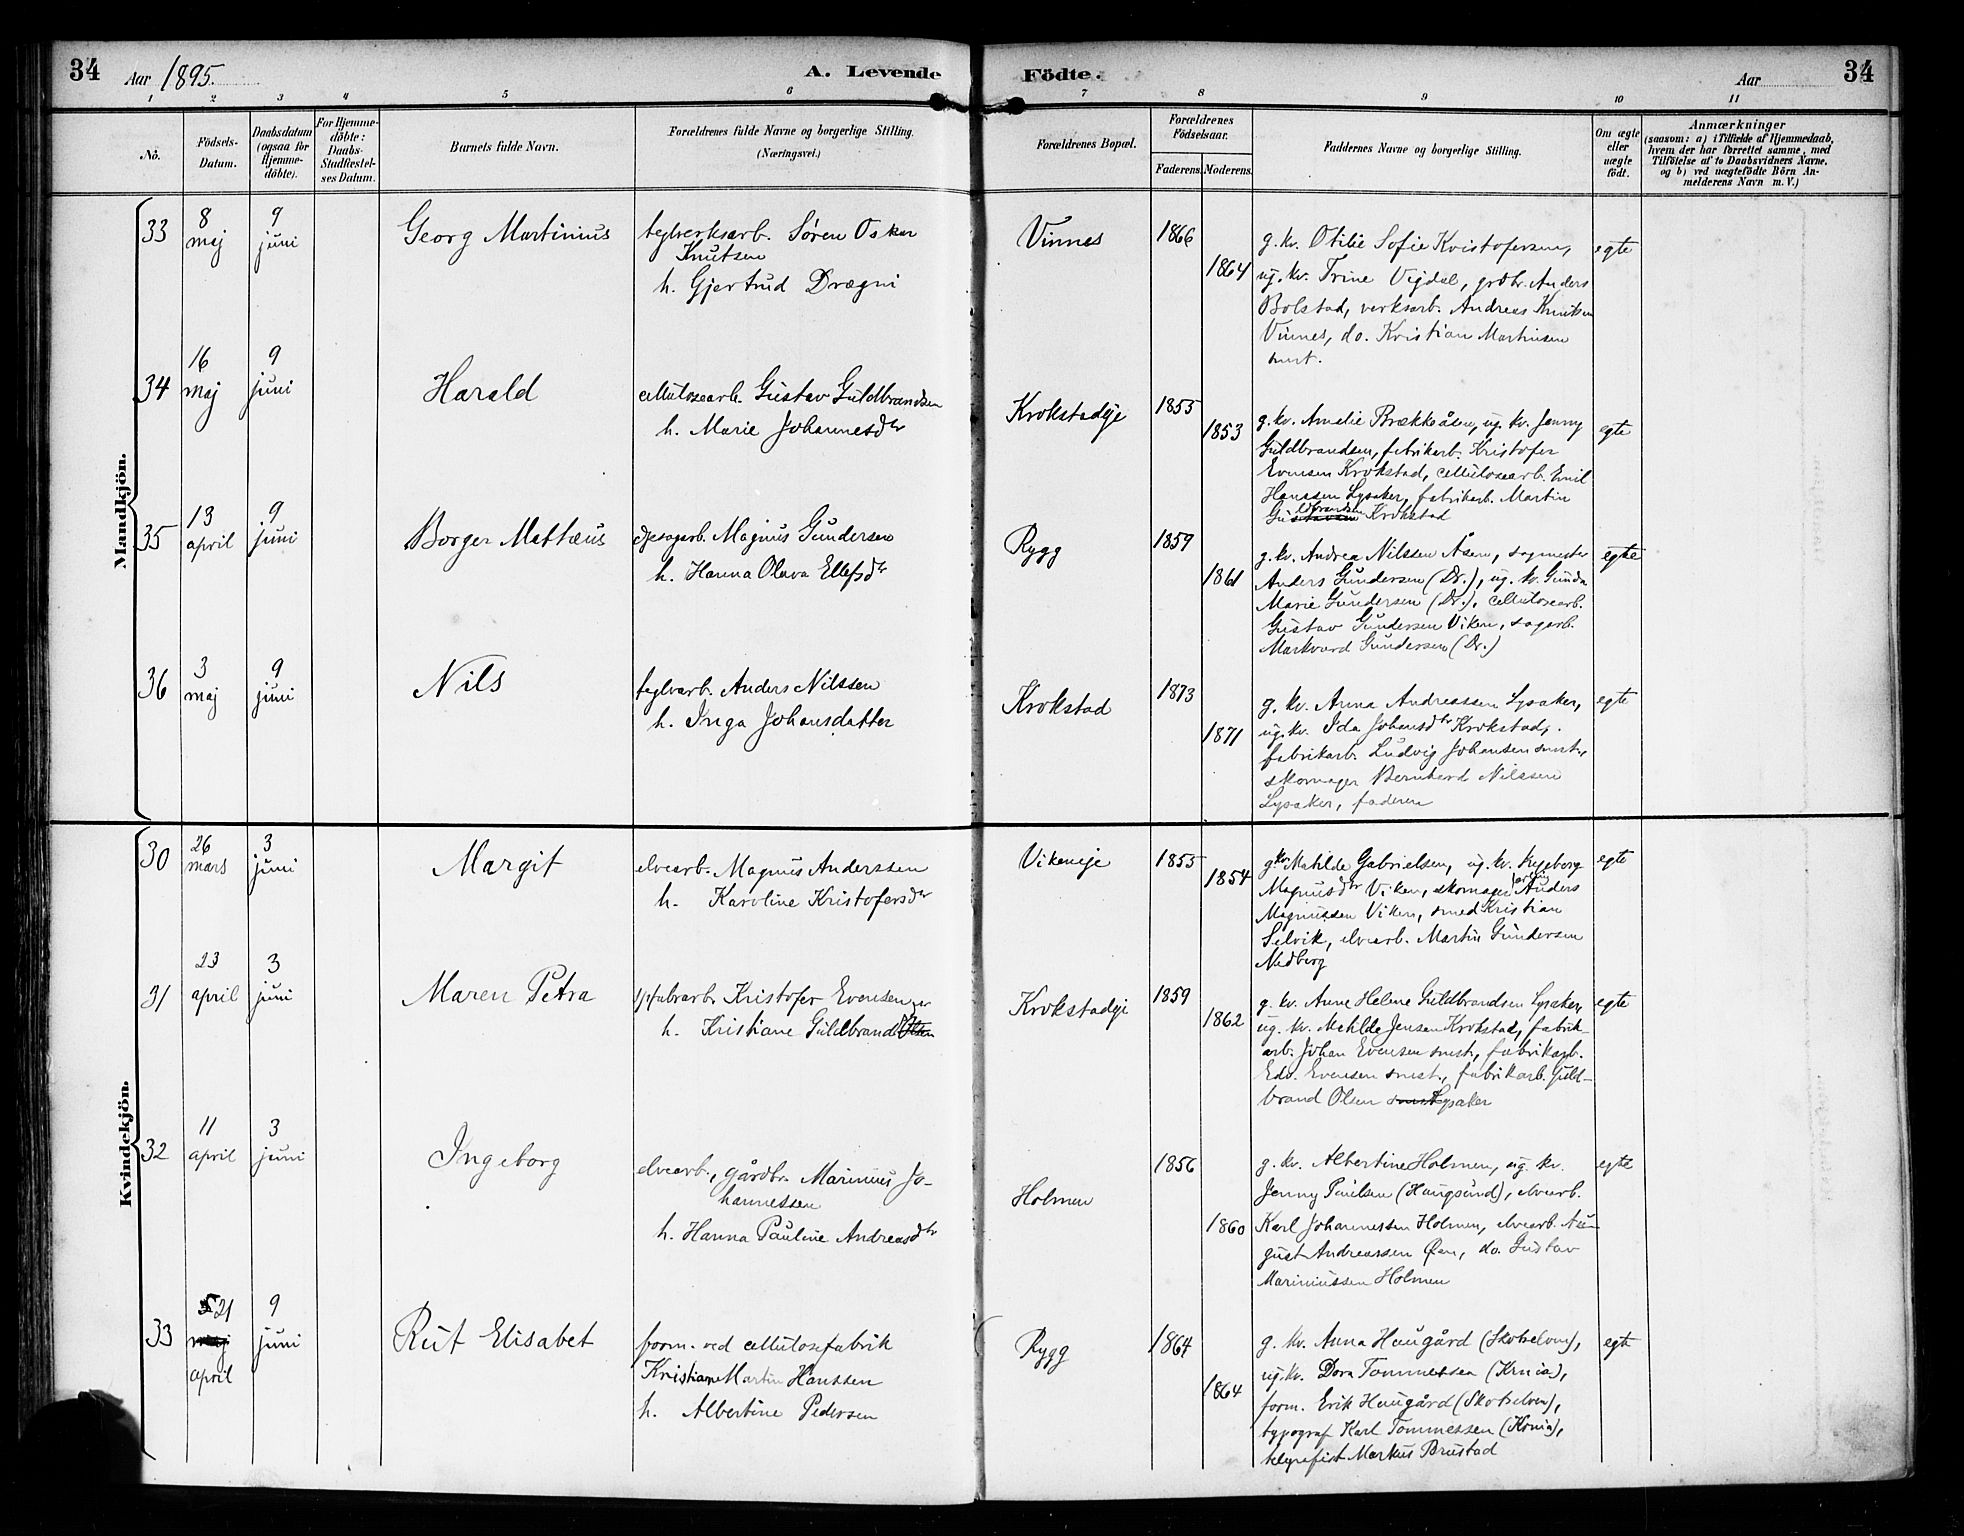 34 Aar 1895. A. Levende Födte. Aar 34
1 2 3 4 5 6 7 8 9 10 11
Nô.
Födsels-Datum.
Daabsdatum (ogsaa for Hjemme-döbte).
For Hjemme-döbte: Daabs-Stadfæstel-ses Datum.
Barnets fulde Navn.
Forældrenes fulde Navne og borgerlige Stilling. (Næringsvei.)
Forældrenes Bopæl.
Forældrenes Födselsaar.
Faderens. Moderens.
Faddernes Navne og borgerlige Stilling.
Om ægte eller uægte födt.
Anmærkninger
(saasom: a) i Tilfælde af Hjemmedaab,
hvem der har forrettet samme, med
Tilföielse af to Daabsvidners Navne,
og b) ved uægtefödte Börn An-
melderens Navn m. V.)
Mandkjön.
33
8 maj
9 juni
Georg Martinius
teglverksarb. Søren Oskar
Knutsen
h. Gjertrud Drægni
Vinnes
1866
1864
g. kv. Otilie Sofie Kristofersen,
ug. kv. Trine Vigdal, grdbr. Anders
Bolstad, verksarb. Andreas Knutsen
Vinnes, do. Kristian Martinsen
smst.
egte
34
16 maj
9 juni
Harald
cellulosearb. Gustav Guldbrandsen
h. Marie Johannesdtr
Krokstadeje
1855
1853
g. kv. Amalie Brækkeåsen, ug. kv. Jenny
Guldbrandsen, fabrikarb. Kristofer
Evensen Krokstad, cellulosearb. Emil
Hanssen Lysaker, fabrikarb. Martin
Guldbrandsen Krokstad
egte
35
13 april
9 juni
Borger Mattæus
dpsagarb. Magnus Gundersen
h. Hanna Olava Ellefsdtr
Rygg
1859
1861
g. kv. Andrea Nilssen Åsen, sagmester
Anders Gundersen (Dr.), ug. kv. Gunda
Marie Gundersen (Dr.), cellulosearb.
Gustav Gundersen Viken, sagarb.
Markvard Gundersen (Dr.)
egte
36
3 maj
9 juni
Nils
teglvarb. Anders Nilssen
h. Inga Johansdatter
Krokstad
1873
1871
g. kv. Anna Andreassen Lysaker,
ug. kv. Ida Johansdtr Krokstad,
fabrikarb. Ludvig Johansen smst.,
skomager Bernhard Nilssen
Lysaker, faderen
egte
Kvindekjön.
30
26 mars
3 juni
Margit
elvearb. Magnus Anderssen
h. Karoline Kristofersdtr
Vikeneje
1855
1854
g. kv. Matilde Gabrielsen, ug. kv. Ingeborg
Magnusdtr Viken, skomager Anders
Magnussen Viken, smed Kristian
Selvik, elvearb. Martin Gundersen
Nedberg
egte
31
23 april
3 juni
Maren Petra
spfabrarb. Kristofer Evensen
h. Kristiane Guldbrandsdtr
Krokstadeje
1859
1862
g. kv. Anne Helene Guldbrandsen Lysaker,
ug. kv. Matilde Jensen Krokstad, fabrik-
arb. Johan Evensen smst., fabrikarb.
Edv. Evensen smst., fabrikarb. Guld-
brand Olsen smst Lysaker
egte
32
11 april
3 juni
Ingeborg
elvearb., gårdbr. Marinius Jo-
hannessen
h. Hanna Pauline Andreasdtr
Holmen
1856
1860
g. kv. Albertine Holmen, ug. kv.
Jenny Paulsen (Haugsund), elvearb.
Karl Johannessen Holmen, elvearb. Au-
gust Andreassen Øen, do. Gustav
Mariniussen Holmen
egte
33
21 maj april
9 juni
Rut Elisabet
form. ved cellulosefabrik
Kristian Martin Hanssen
h. Albertine Pedersen
Rygg
1864
1864
g. kv. Anna Haugård (Skotselven),
ug. kv. Dora Tommessen (Krnia),
form. Erik Haugård (Skotselven),
typograf Karl Tommessen (Krnia),
telegrafist Markus Brustad
egte